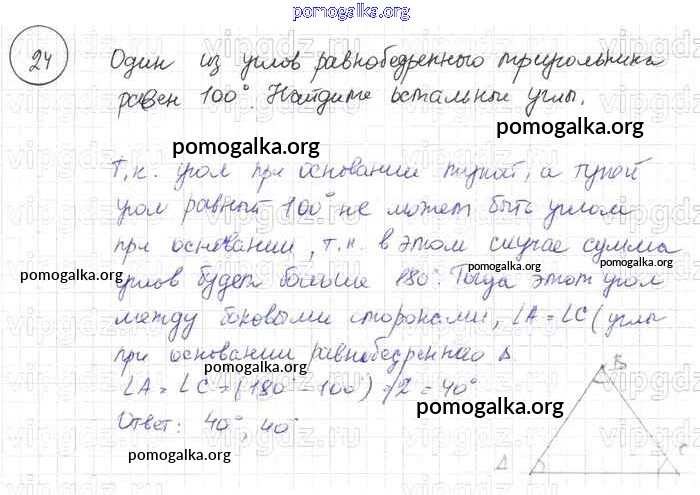 pomogalka.org
24
Один из углов равнобедренного треугольника
равен 100°. Найдите остальные углы.
pomogalka.org
pomogalka.org
Т.к. угол при основании тупой, а тупой
угол равный 100° не может быть углом
при основании, т.к. в этом случае сумма
pomogalka.org
pomogalka.org
pomogalka.org
углов будет больше 180°. Тогда этот угол
между боковыми сторонами, ∠A = ∠C (углы
при основании равнобедренного Δ
∠A = ∠C = (180° - 100°) / 2 = 40°
pomogalka.org
Ответ: 40°, 40°
pomogalka.org
B
A
C
vipgdz.ru